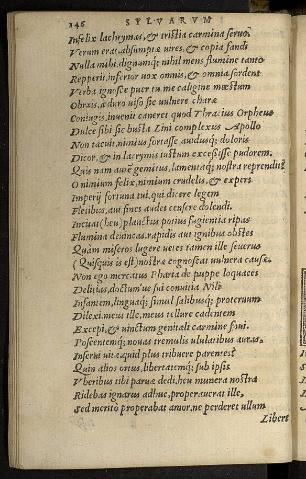 146 SYLVARVM
Infelix lachrymas, & tristia carmina seruo?
Verum erat, absumptæ uires, & copia fandi
Nulla mihi, dignumq; nihil mens flumine tanto
Repperit, inferior uox omnis, & omnia sordent
Verba ignosce puer tu me caligine mœstum
Obruis, æ duro uiso sic uulnere charæ
Coniugis, inuenit caneret quod Thracius Orpheus
Dulce sibi sic busta Lini complexus Apollo
Non tacuit, nimius fortasse auidusq; doloris
Dicor, & in lacrymis iustum excessisse pudorem.
Quis nam autē gemitus, lamentaq; nostra reprendit?
O nimium felix, nimium crudelis, & expers
Imperij fortuna tui, qui dicere legem
Fletibus, aut fines audes censere dolendi.
Incitat (heu) planctus potius fugientia ripas
Flumina deuincas, rapidis aut ignibus obstes
Quàm miseros lugere uetes tamen ille seuerus
(Quisquis is est) nostræ cognoscat uulnera causæ.
Non ego mercatus Pharia de puppe loquaces
Delitias, doctum'ue sui conuitia Nili
Infantem, linguaq; simul salibusq; proteruum
Dilexi, meus ille, meus tellure cadentem
Excepi, & uinctum genitali carmine foui.
Poscentemq; nouas tremulis ululatibus auras,
Inserui uitæ, quid plus tribuere parentes?
Quin alios ortus, libertatemq; sub ipsis
Vberibus tibi parue dedi, heu munera nostra
Ridebas ignarus adhuc, properauerat ille,
Sed meritò properabat amor, ne perderet ullum
Libert